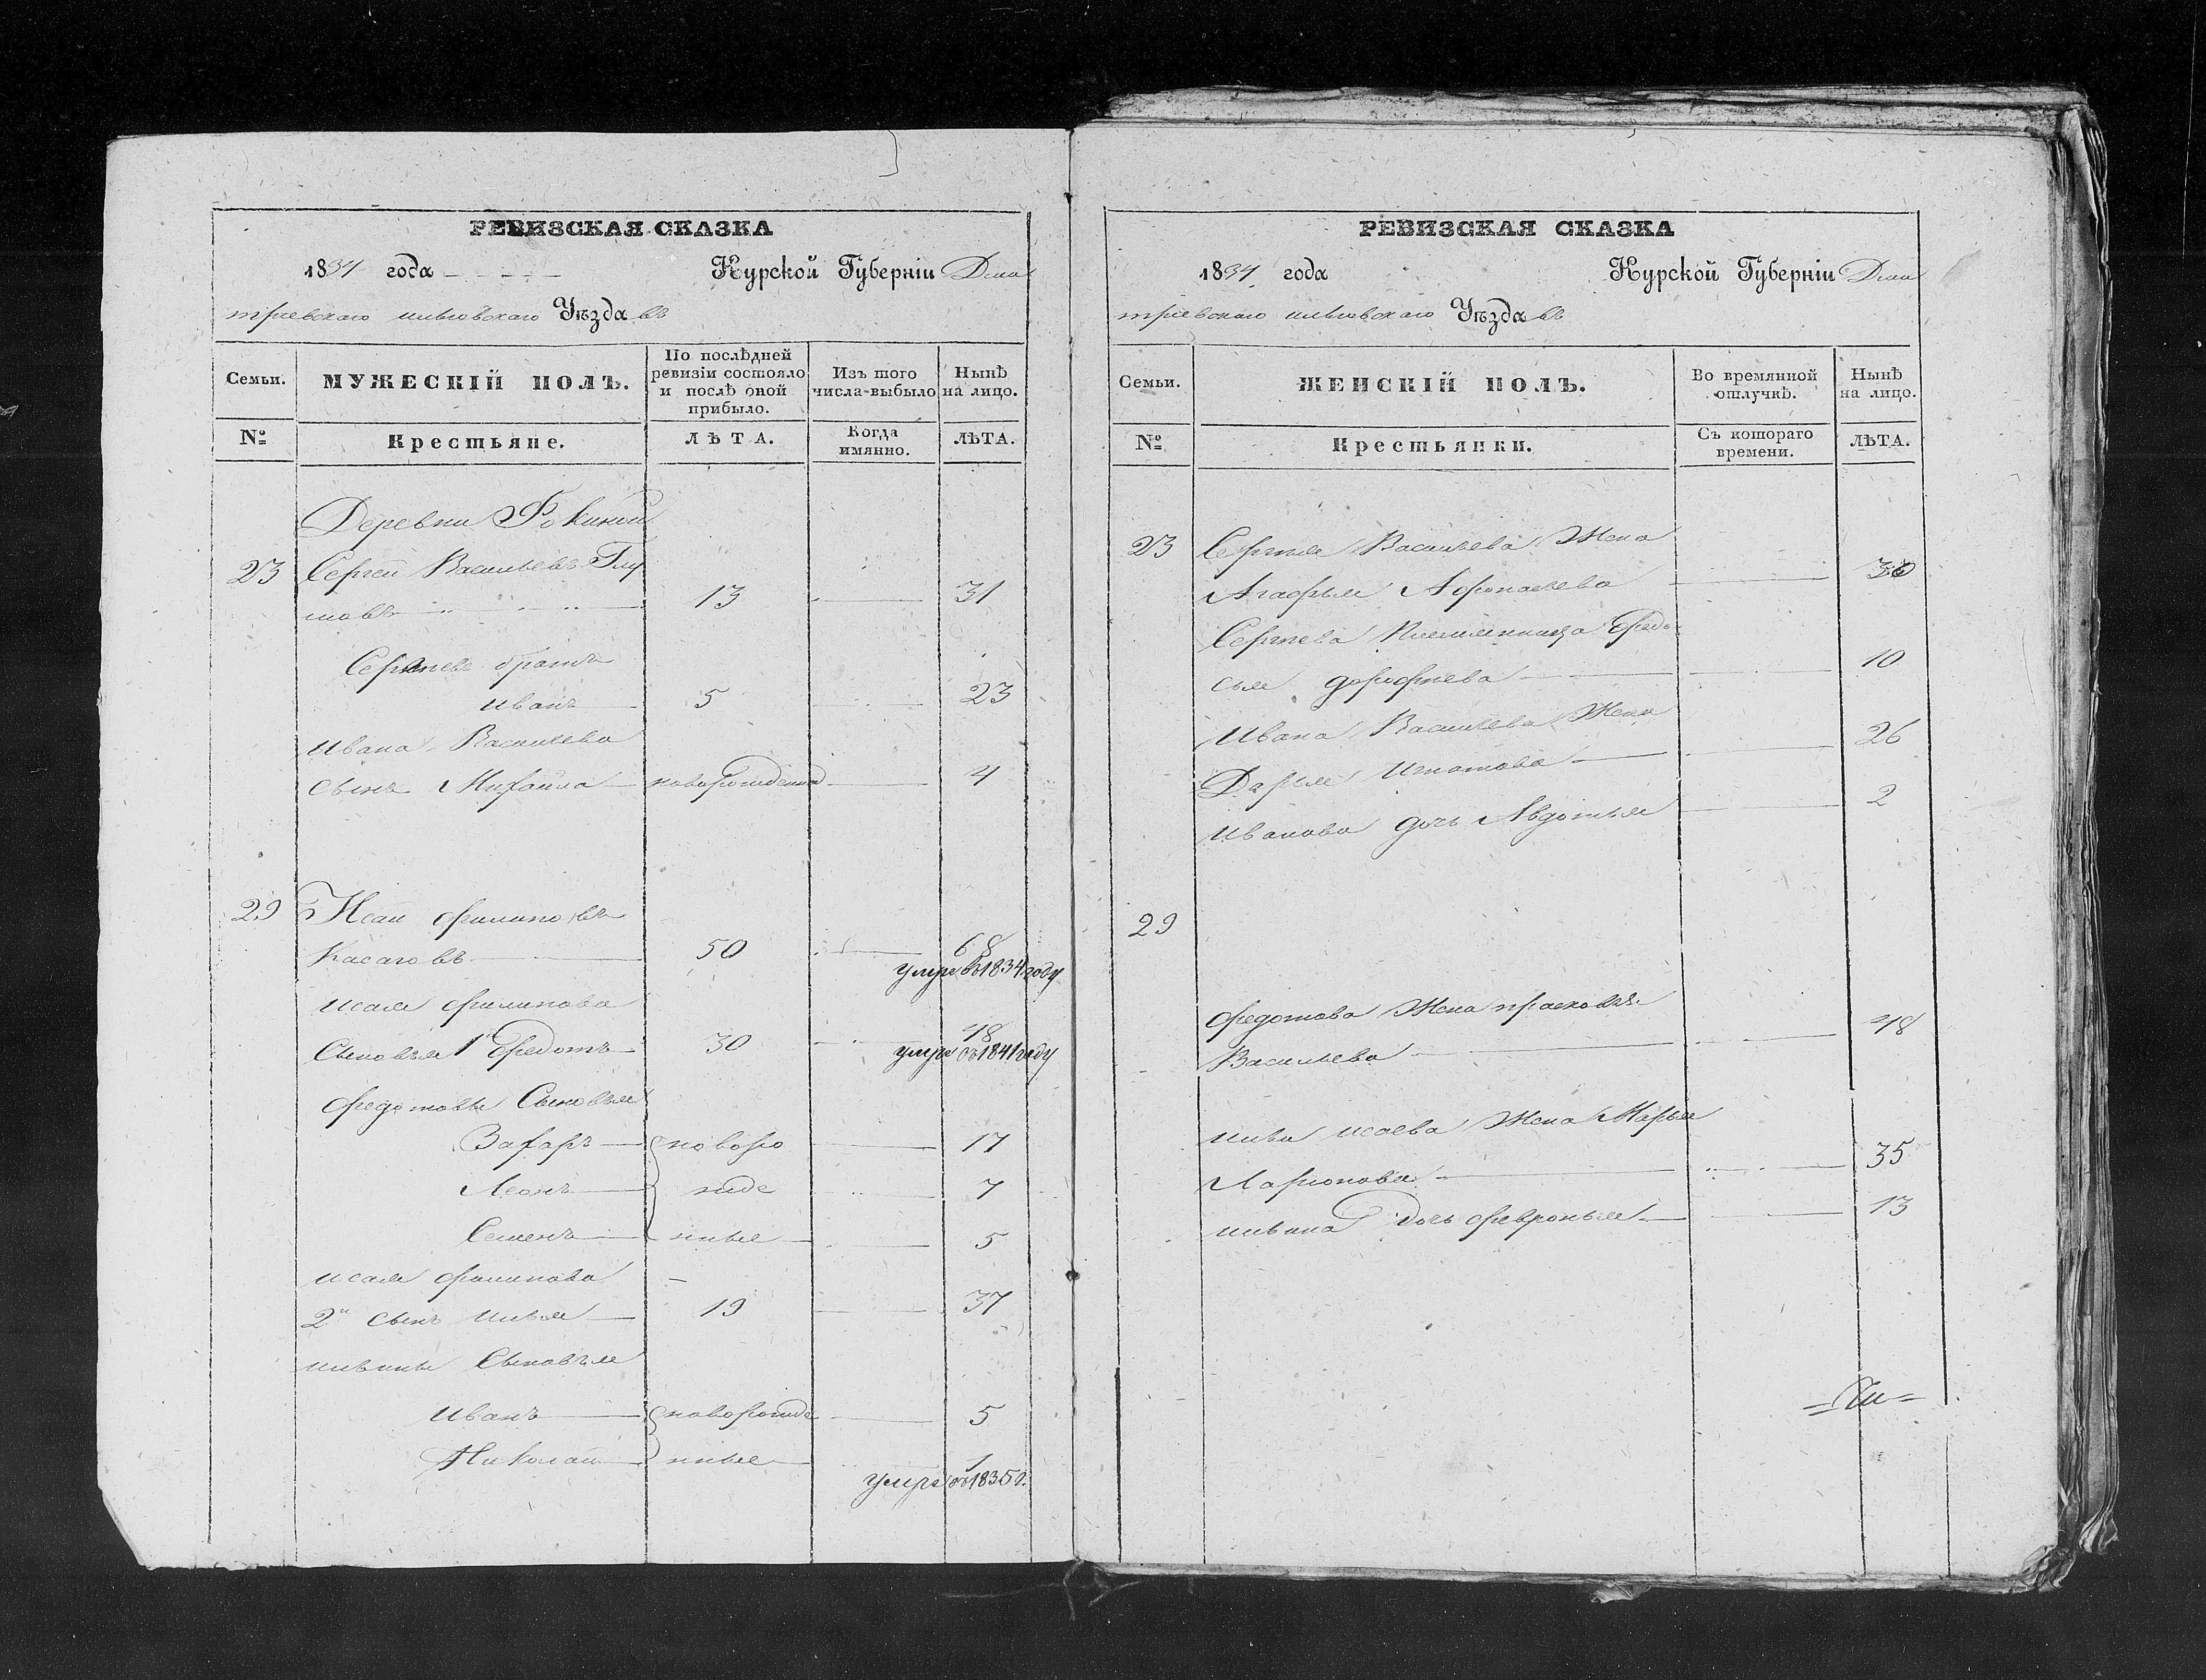 РЕВИЗСКАЯ СКАЗКА
1834 года Курской Губерніи Дми
тріевскаго на Уѣзда въ
Семьи.
МУЖЕСКІЙ ПОЛЪ.
По послѣдней
ревизіи состояло
и послѣ оной
прибыло.
Изъ того
числа выбыло
Нынѣ
на лицо.
№
Крестьяне.
ЛѢТА.
Когда
имянно.
ЛѢТА.
Деревни Фокиной
23 Сергей Васильевъ Глу
шовъ 13 31
Сергѣевъ братъ
Иванъ 5 23
Ивана Васильева
сынъ Михайла новорожденной 4
29 Исай Филиповъ
Касаговъ 50 68
умре въ 1834 году
Исая Филипова
Сыновья 1й Федотъ 30 48
умре въ 1841 году
Федотовы Сыновья
Захаръ новоро 17
Леонъ жде 7
Семенъ нные 5
Исая Филипова
2й сынъ Илья 19 37
Ильины Сыновья
Иванъ новорожде 5
Николай нные 1
умре въ 1835 г.
РЕВИЗСКАЯ СКАЗКА
1834 года Курской Губерніи Дми
тріевскаго на Уѣзда въ
Семьи.
ЖЕНСКІЙ ПОЛЪ.
Во времянной
отлучкѣ.
Нынѣ
на лицо.
№
Крестьянки.
Съ котораго
времени.
ЛѢТА.
23 Сергея Васильева Жена
Агафья Афонасьева 30
Сергѣева Племянница Федо
сья Дорофѣева 10
Ивана Васильева Жена
Дарья Игнатова 26
Иванова дочь Авдотья 2
29
Федотова Жена Прасковья
Васильева 48
Ильи Исаева Жена Марья
Ларионова 35
Ильина дочь Февронья 13